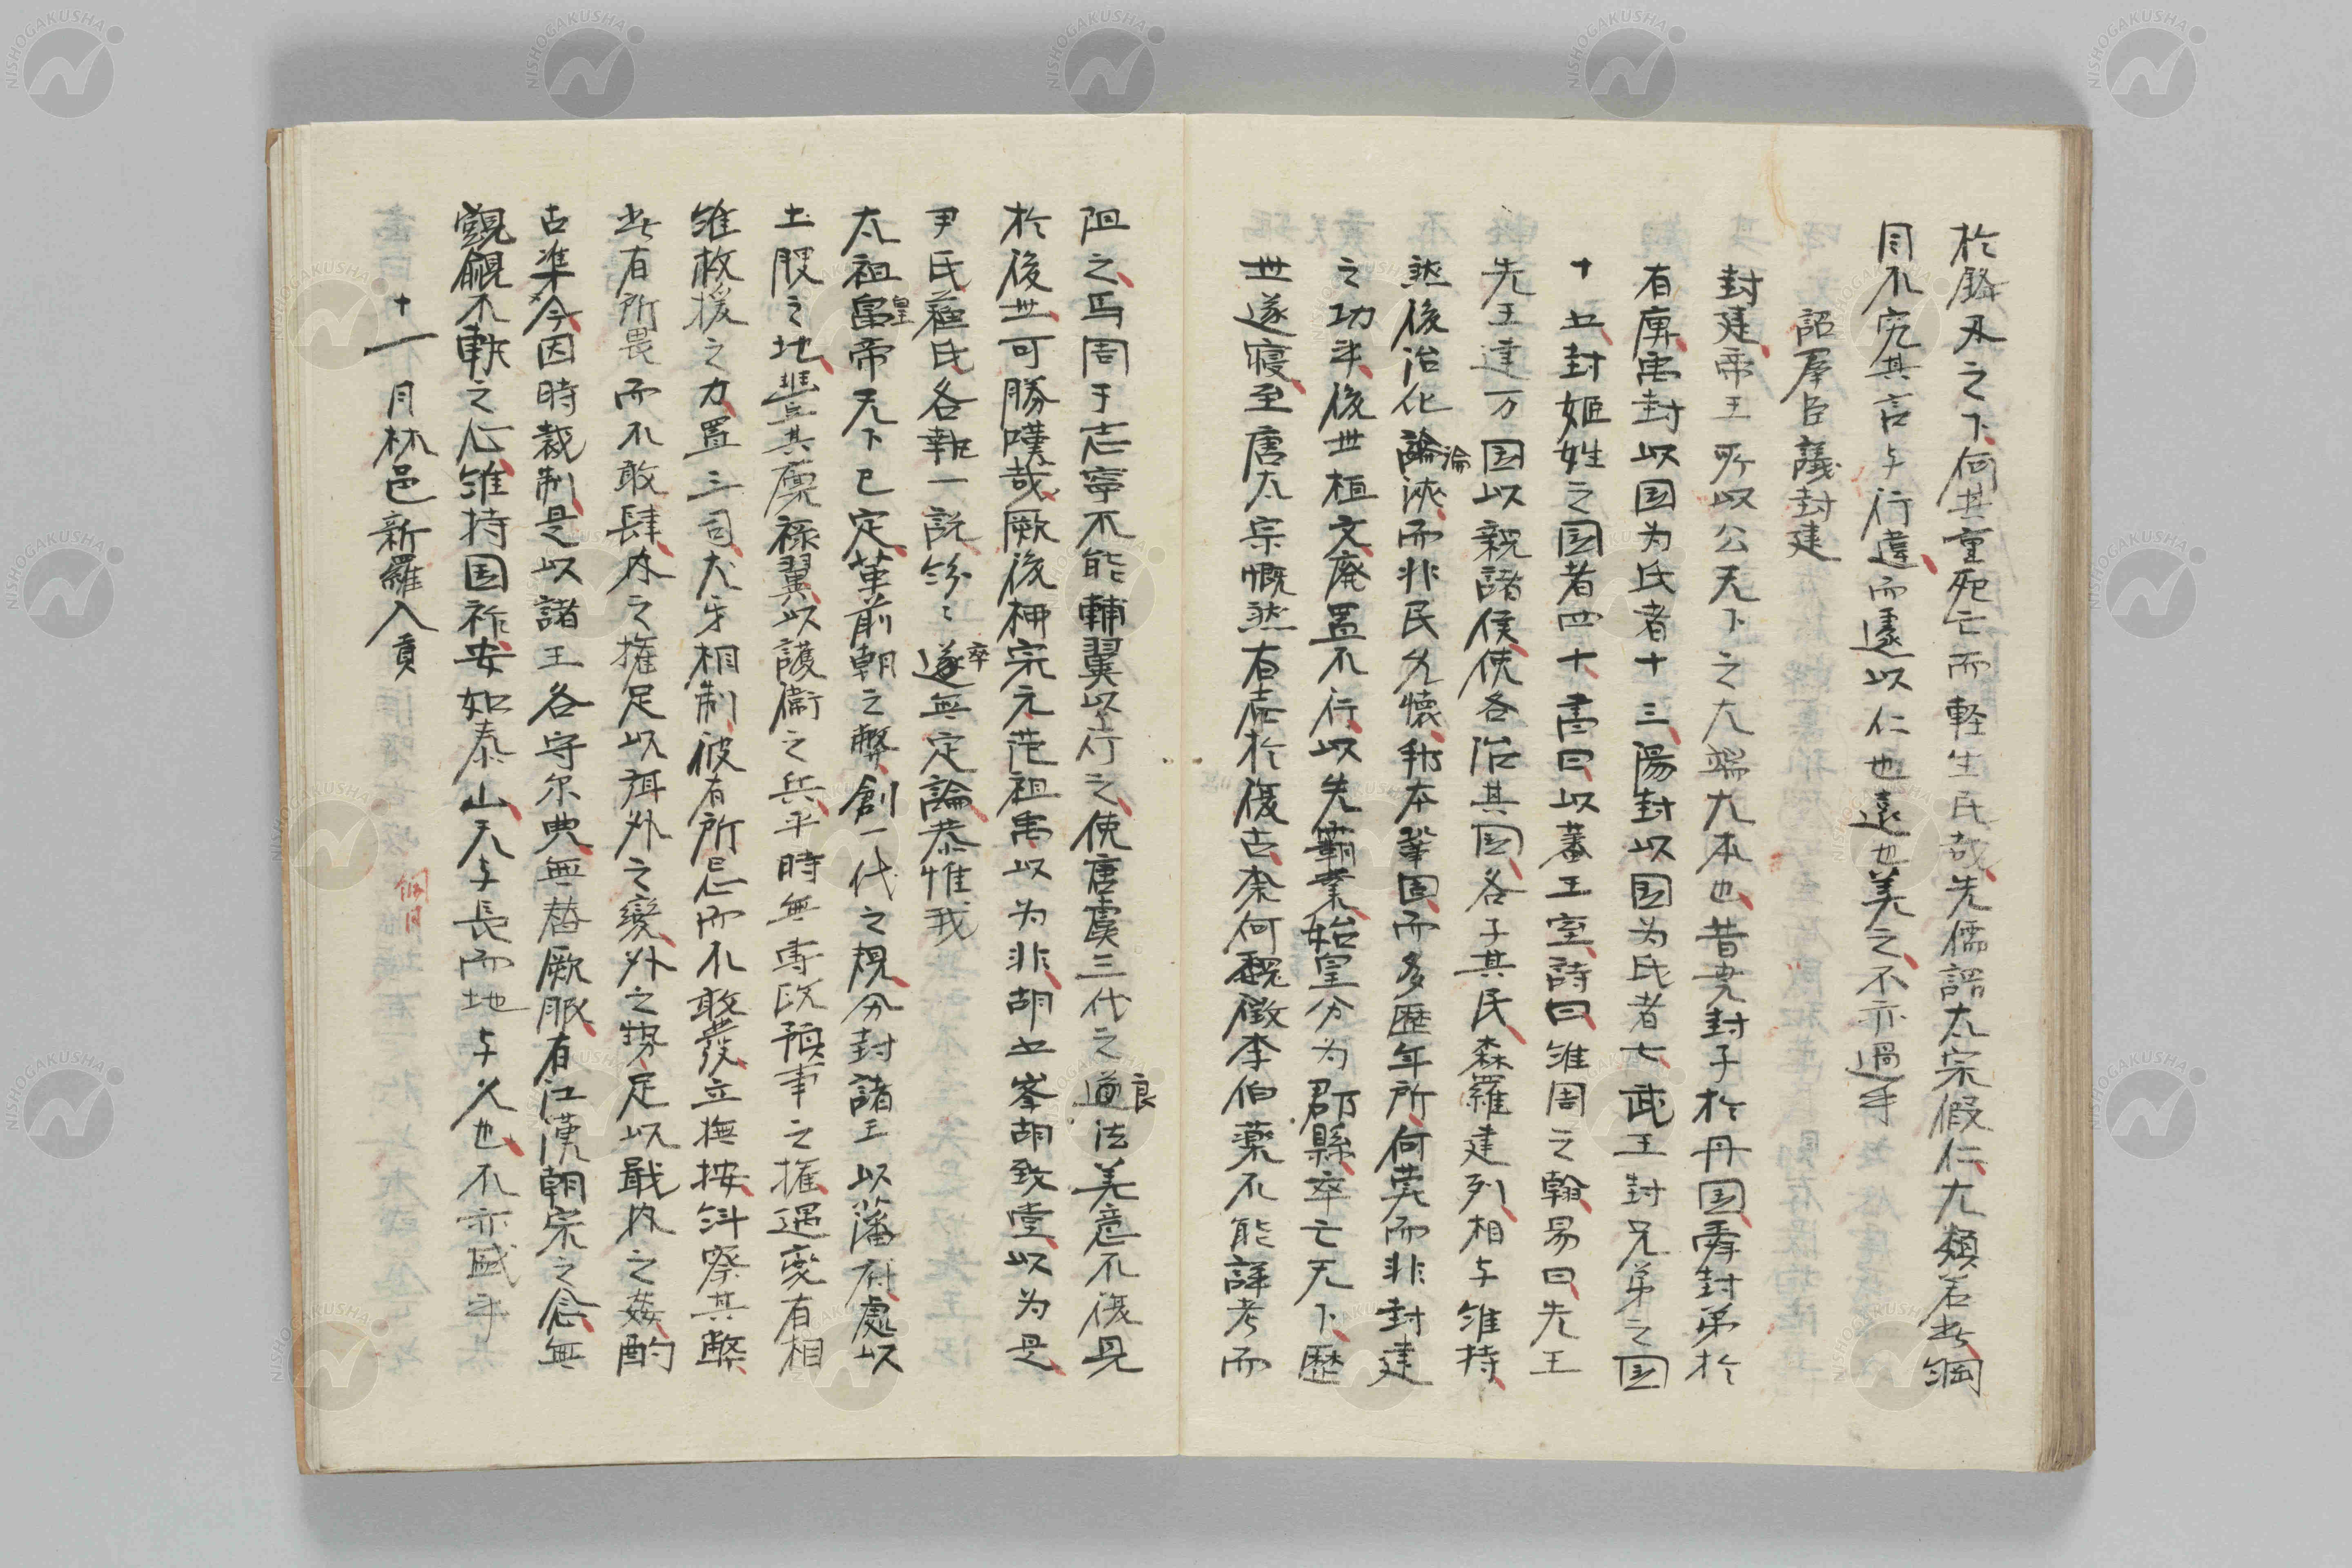 於鋒刃之下何其重死亡而軽生民哉先儒謂太宗假仁尤類若此綱
目不究其言与行違而遽以仁也遠也美之不亦過乎
詔羣臣議封建
封建帝王所以公天下之大端大本也昔尭封子於丹国舜封弟於
有庳禹封以国为氏者十三湯封以国为氏者七武王封兄弟之国
十五封姬姓之国者四十書曰以蕃王室詩曰維周之翰易曰先王
先王建万国以親諸侯使各治其国各子其民森羅建列相与維持
然後治化論浹而非民乂懐邦本鞏固而多歴年所何莫而非封建
論
之功乎後世桓文廃置不行以先覇業始皇分为郡縣卒亡天下歴
世遂寝至唐太宗慨然有志於復古柰何魏徴李伯薬不能詳考而
阻之馬周于志寧不能輔翼以行之使唐虞三代之道法美意不復見
良
於後世可勝嘆哉厥後栁宗元范祖禹以为非胡五峯胡致堂以为是
尹氏蘓氏各執一説紛〻遂無定論恭惟我
卒
太祖高帝天下已定革前朝之弊創一代之規分封諸王以藩府處以
皇
土腴之地豊其廪禄翼以護衛之兵平時無専政預事之権遇変有相
維救援之力置三司犬牙相制彼有所忌而不敢發立撫按糾察其弊
此有所畏而不敢肆内之権足以弭外之變外之勢足以戢内之姦酌
古準今因時裁制是以諸王各守尓典無替厥服有江漢朝宗之念無
覬覦不軌之心維持国祚安如泰山天与長而地与久也不亦盛乎
十一月林邑新羅入貢
綱目